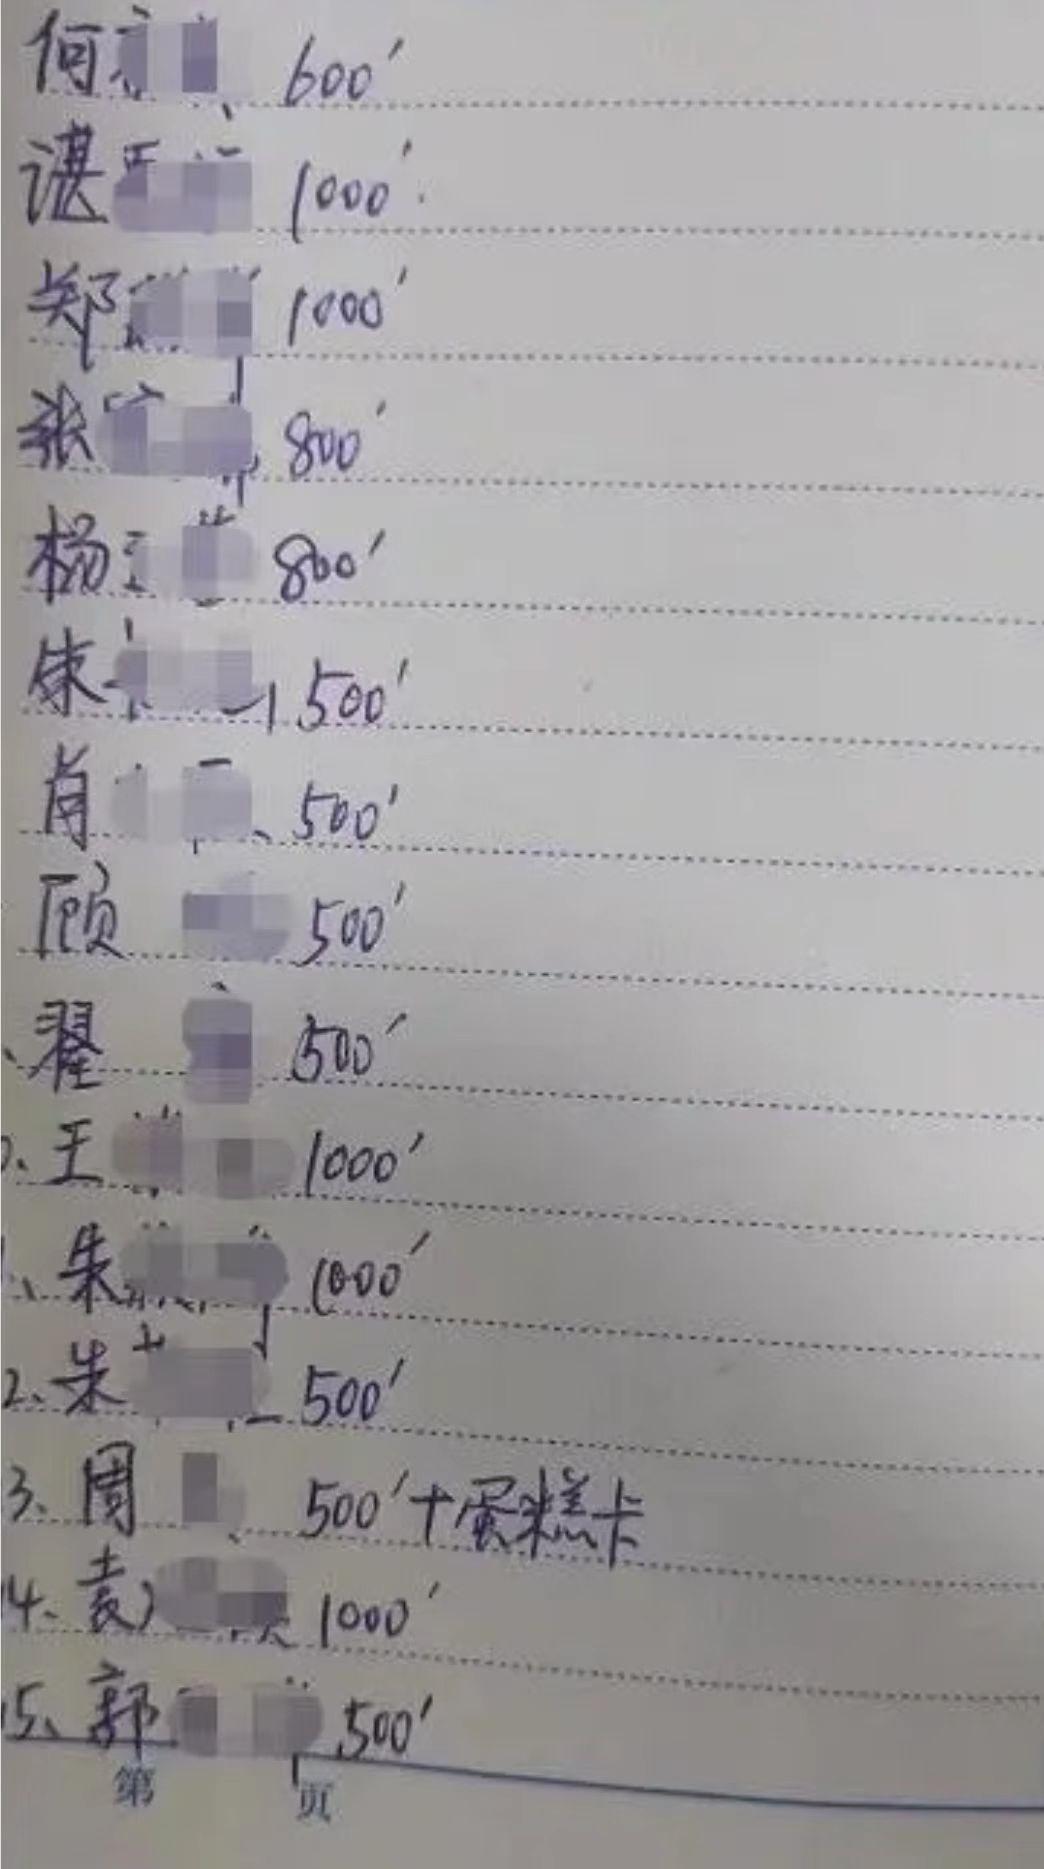 何 600'
谌 1000'
郑 1000'
张 800'
杨 800'
朱 500'
肖 500'
顾 500'
翟 500'
王 1000'
朱 1000'
2、朱 500'
3、周 500'+蛋糕卡
14、袁 1000'
15、郭 500'
第 页